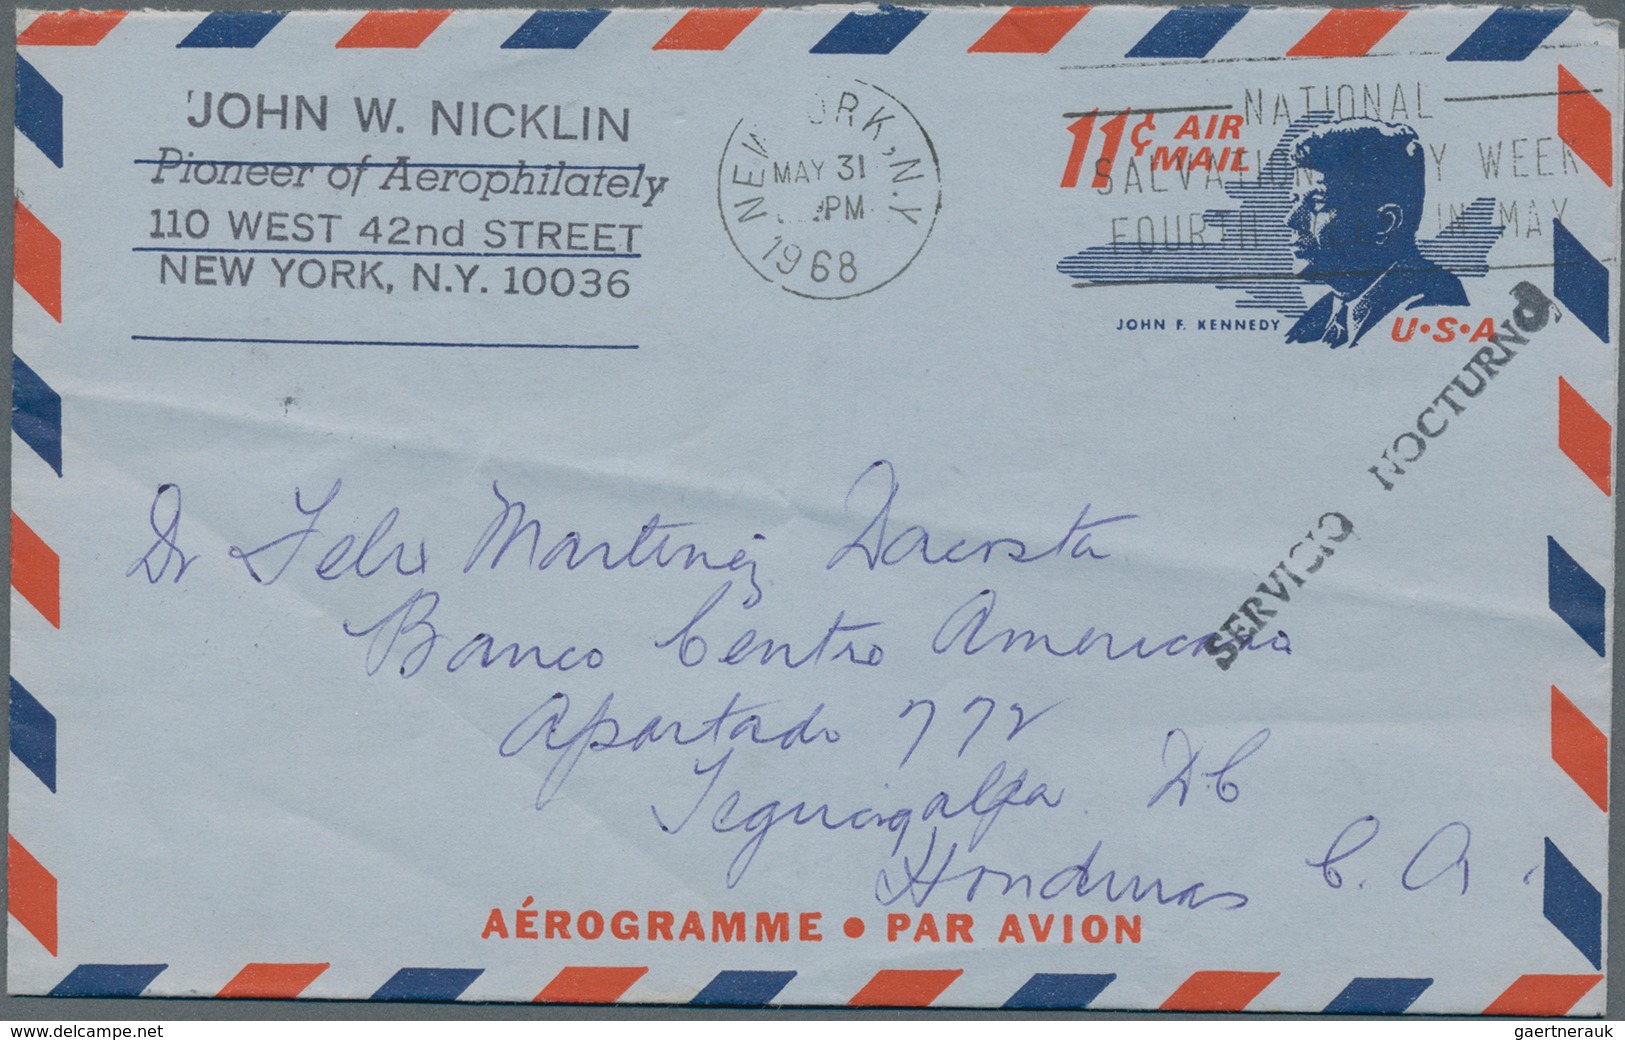 JOHN W. NICKLIN
Pioneer of Aerophilately
110 WEST 42nd STREET
NEW YORK, N.Y. 10036
NEW YORK, N.Y.
MAY 31
PM
1968
NATIONAL
SALVATION ARMY WEEK
FOURTH WEEK IN MAY
11¢ AIR
MAIL
JOHN F. KENNEDY
U·S·A
SERVICIO NOCTURNO
Dr Felix Martinez Dacosta
Banco Centro Americano
Apartado 772
Tegucigalpa D C
Honduras C. A.
AÉROGRAMME • PAR AVION
www.delcampe.net
gaertnerauk